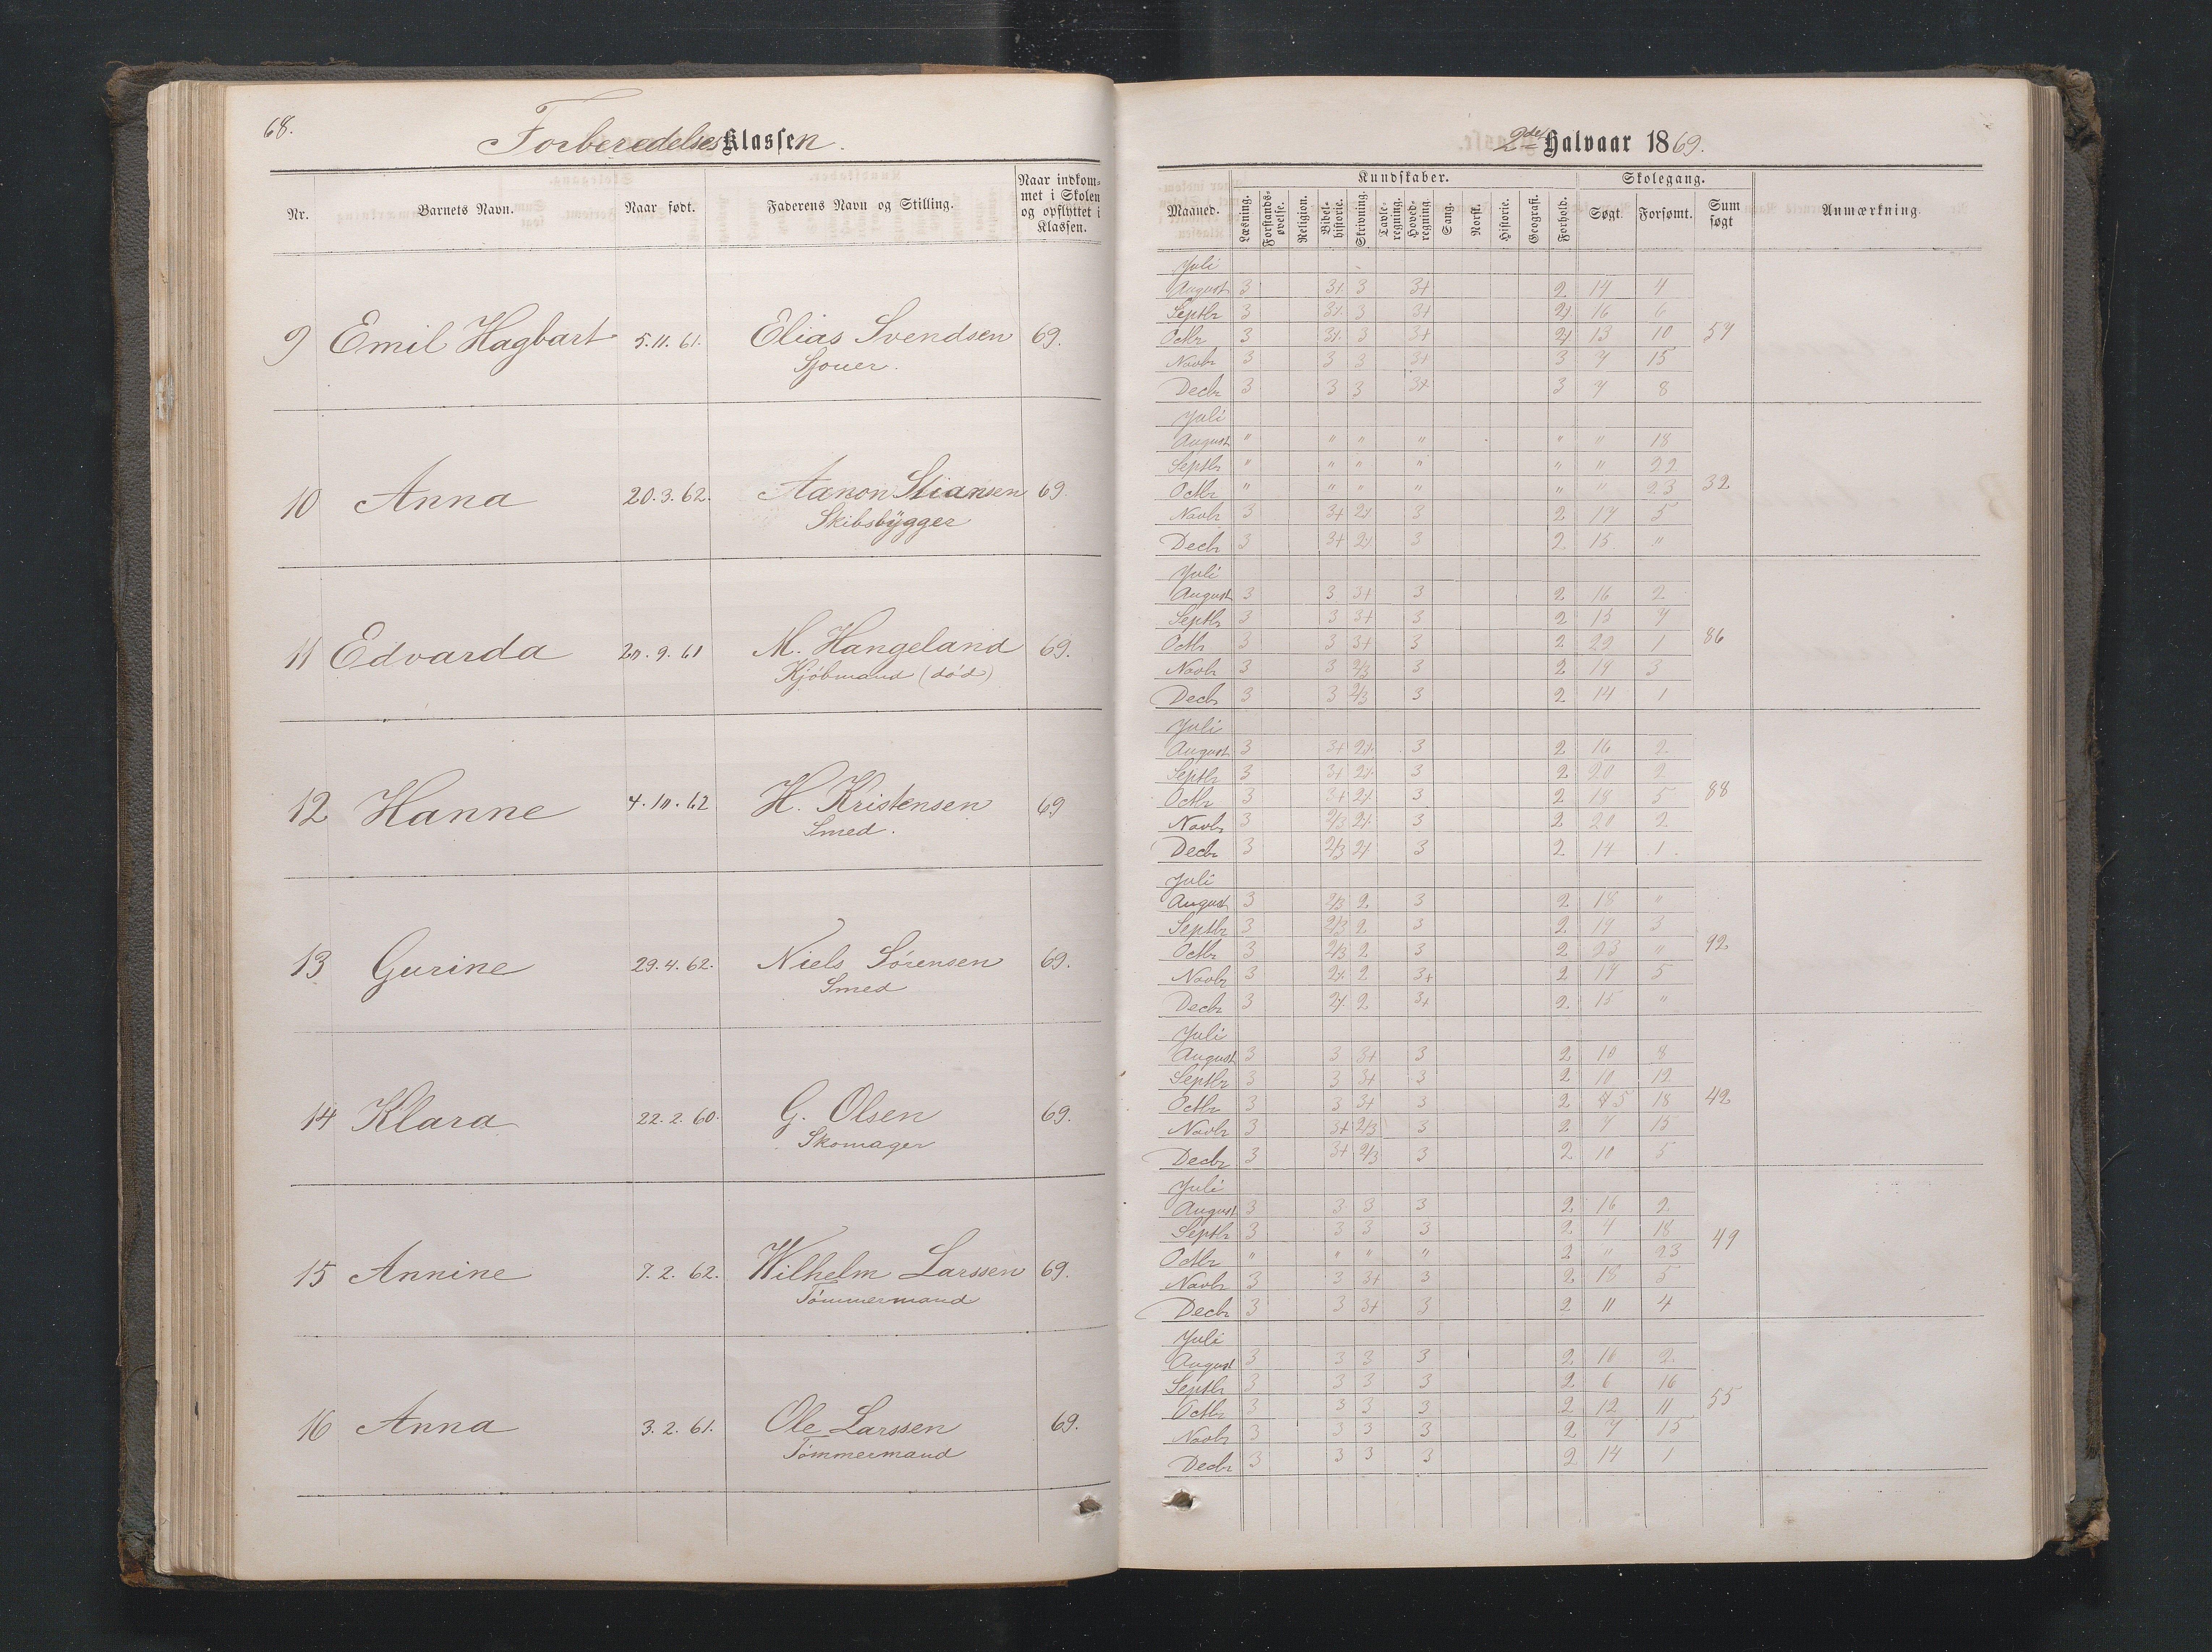 68.
Forberedelses Klassen.
Nr. Barnets Navn. Naar født. Faderens Navn og Stilling. Naar indkommet i Skolen og opflyttet i Klassen.
9 Emil Hagbart 5.11.61. Elias Svendsen 69.
Sjouer.
10 Anna 20.3.62. Aanon Stiansen 69.
Skibsbygger
11 Edvarda 9.61 M. Hangeland 69.
Kjøbmand (død)
12 Hanne 4. 62 H. Kristensen 69
Smed.
13 Gurine 29.4.62. Niels Sørensen 69.
Smed
14 Klara 22.2.60. G. Olsen 69.
Skomager
15 Annine 7.2.62. Wilhelm Larssen 69.
Tømmermand
16 Anna 3.2.61. Ole Larssen 69.
Tømmermand
2det Halvaar 1869.
Kundskaber. Skolegang.
Maaned. Læsning. Forstandsøvelse. Religion. Bibelhistorie. Skrivning. Tavleregning. Hovedregning. Sang. Norsk. Historie. Geografi. Forhold. Søgt. Forsømt. Sum søgt Anmærkning.
Juli
August 3 3+ 3 3+ 2 14 4
Septbr 3 3+ 3 3+ 2+ 16 6
Octbr 3 3+ 3 3+ 2+ 13 10 57
Novbr 3 3 3 3+ 3 7 15
Decbr 3 3 3 3+ 3 7 8
Juli
August " " " " " " 18
Septbr " " " " " " 22
Octbr " " " " " " 23 32
Novbr 3 3+ 2+ 3 2 17 5
Decbr 3 3+ 2+ 3 2 15 "
Juli
August 3 3 3+ 3 2 16 2
Septbr 3 3 3+ 3 2 15 7
Octbr 3 3 3+ 3 2 22 1 86
Novbr 3 3 2/3 3 2 19 3
Decbr 3 3 2/3 3 2 14 1
Juli
August 3 3+ 2+ 3 2 16 2
Septbr 3 3+ 2+ 3 2 20 2
Octbr 3 3+ 2+ 3 2 18 5 88
Novbr 3 2/3 2+ 3 2 20 2
Decbr 3 2/3 2+ 3 2 14 1
Juli
August 3 2/3 2 3 2 18 "
Septbr 3 2/3 2 3 2 19 3
Octbr 3 2/3 2 3 2 23 " 92
Novbr 3 2+ 2 3+ 2 17 5
Decbr 3 2+ 2 3+ 2 15 "
Juli
August 3 3 3+ 3 2 10 8
Septbr 3 3 3+ 3 2 10 12
Octbr 3 3 3+ 3 2 5 18 42
Novbr 3 3+ 2/3 3 2 7 15
Decbr 3 3+ 2/3 3 2 10 5
Juli
August 3 3 3 3 2 16 2
Septbr 3 3 3 3 2 4 18
Octbr " " " " 2 " 23 49
Novbr 3 3 3+ 3 2 18 5
Decbr 3 3 3+ 3 2 11 4
Juli
August 3 3 3 3 2 16 2
Septbr 3 3 3 3 2 6 16
Octbr 3 3 3 3 2 12 11 55
Novbr 3 3 3 3 2 7 15
Decbr 3 3 3 3 2 14 1